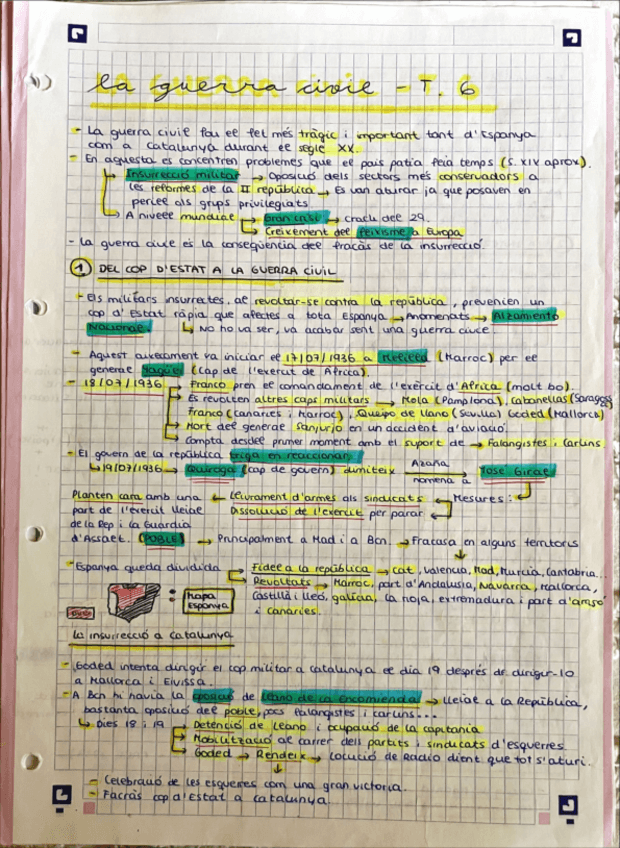 La guerra civil - T. 6
- La guerra civil fou el fet més tràgic i important tant d'Espanya
com a Catalunya durant el segle XX.
- En aquesta es concentren problemes que el país patia feia temps (S. XIX aprox).
↳ Insurrecció militar → Oposició dels sectors més conservadors a
les reformes de la II república → Es van aturar ja que posaven en
perill als grups privilegiats.
↳ A nivell mundial → Gran crisi → crack del 29.
↳ Creixement del feixisme a Europa
- La guerra civil és la conseqüència del fracàs de la insurrecció.
① DEL COP D'ESTAT A LA GUERRA CIVIL
- Els militars insurrectes, al revoltar-se contra la república, prevenien un
cop d'Estat ràpid que afectés a tota Espanya → Anomenats → Alzamiento
Nacional. ↳ No ho va ser, va acabar sent una guerra civil.
- Aquest aixecament va iniciar el 17/07/1936 a Melilla (Marroc) per el
general Yagüe (cap de l'exèrcit de Àfrica).
- 18/07/1936 → Franco pren el comandament de l'exèrcit d'Àfrica (molt bo).
→ Es revolten altres caps militars → Mola (Pamplona), Cabanellas (Saragossa)
Franco (Canaries i Marroc), Queipo de Llano (Sevilla) Goded (Mallorca)
→ Mort del general Sanjurjo en un accident d'aviació.
→ Compta desde primer moment amb el suport de → Falangistes i Carlins.
- El govern de la república triga en reaccionar
↳ 19/07/1936 → Quiroga (cap de govern) dimiteix Azaña nomena a → José Giral
Planten cara amb una ← Lliurament d'armes als sindicats ← Mesures:
part de l'exèrcit lleial Dissolució de l'exèrcit per parar
de la Rep i la Guardia
d'Assalt. (POBLE) → Principalment a Mad i a Bcn. → Fracassa en alguns territoris
- Espanya queda dividida → Fidel a la república → cat, Valencia, Mad, Murcia, Cantabria...
→ Revoltats → Marroc, part d'Andalusia, Navarra, Mallorca,
: Mapa Castilla i Lleó, galicia, la rioja, extremadura i part d'aragó
Espanya i canaries.
La insurrecció a Catalunya
- Goded intenta dirigir el cop militar a Catalunya el dia 19 després de dirigir-lo
a Mallorca i Eivissa.
- A Bcn hi havia la oposició de Llano de la Encomienda → lleial a la República,
bastanta oposició del poble, pocs falangistes i carlins...
↳ Dies 18 i 19 → Detenció de Llano i ocupació de la capitania
→ Mobilització al carrer dels partits i sindicats d'esquerres
→ Goded → Rendeix → Locució de Radio dient que tot s'aturi.
- Celebració de les esquerres com una gran victoria.
- Facràs cop d'Estat a Catalunya.